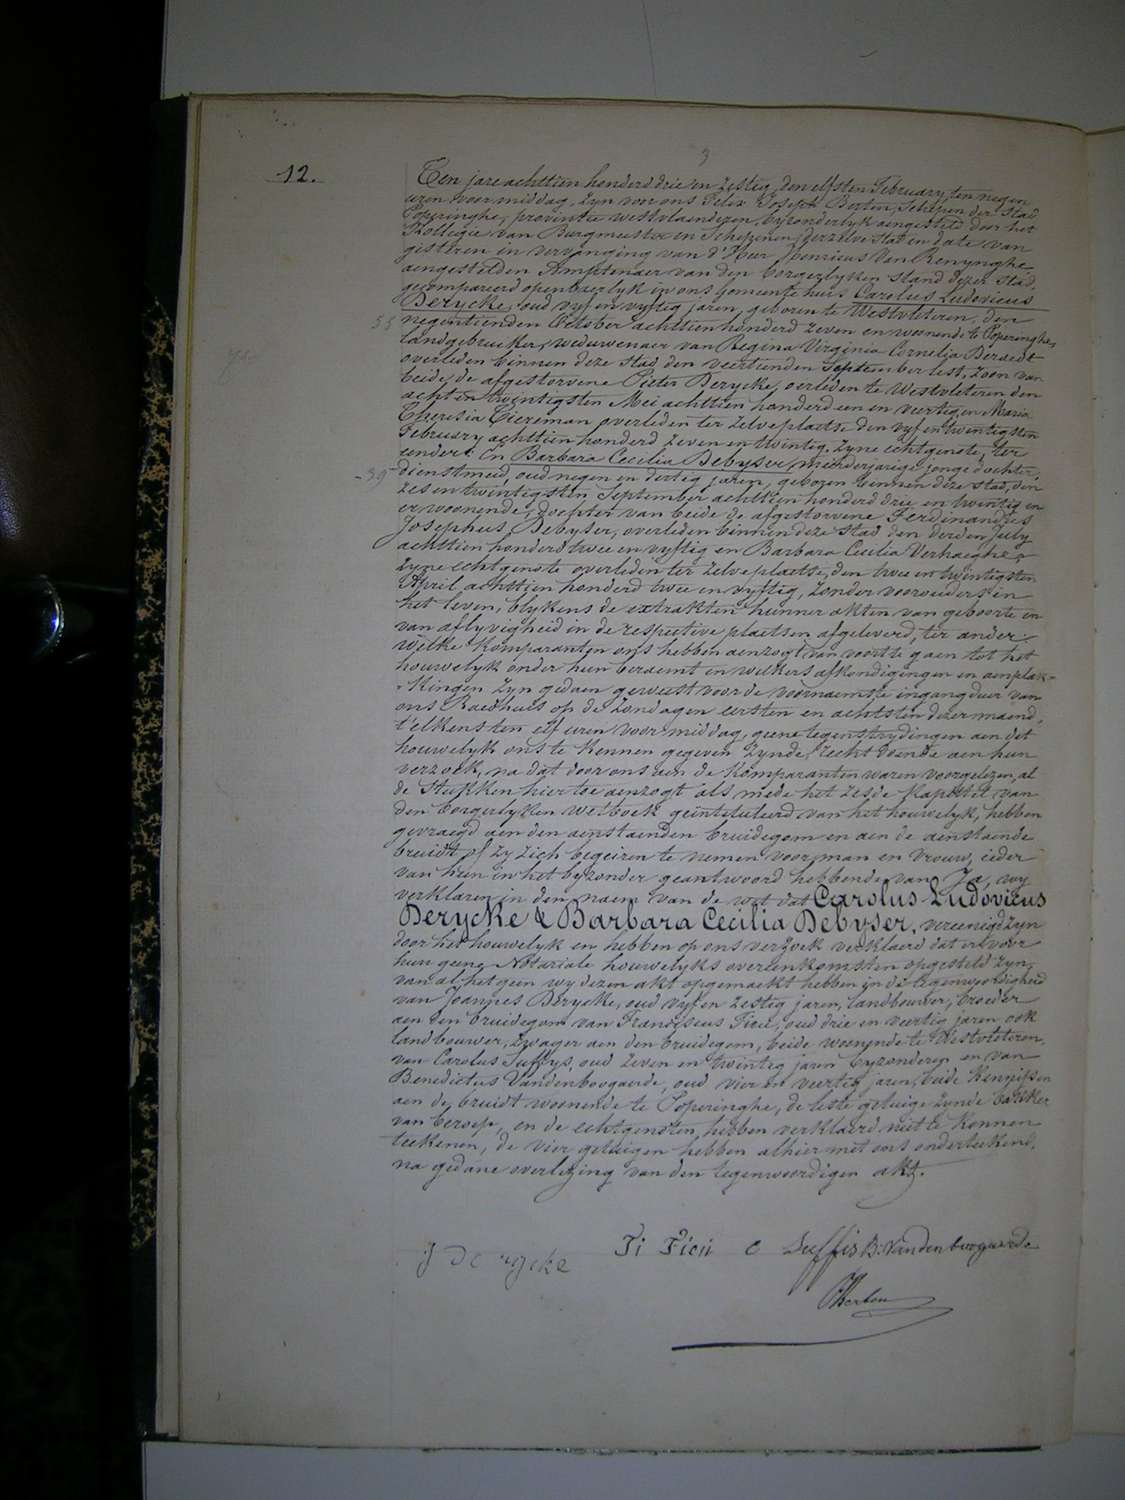 3
12.
Ten jare achttien honderd drie en zestig, den elfsten february, ten negen
uren voor middag, zyn voor ons Felix Joseph Berten, Schepen der Stad
Poperinghe, provintie westvlaenderen, byzonderlyk aengesteld door het
Kollegie van Burgmeester en Schepenen derzelve stad en date van
gistren in vervanging van d'Heer Henricus Van Renynghe
aengestelden Amptenaer van den borgerlyken stand dezer stad,
gecompareerd openbaerlyk in ons gemeentehuis Carolus Ludovicus
Derycke, oud vyf en vyftig jaren, geboren te Westvleteren, den
55
negentienden October achttien honderd zeven en woonende te Poperinghe,
landgebruiker, weduwenaer van Regina Virginia Cornelia Beraedt
overleden binnen deze stad den veertienden September lest, zoon van
beide de afgestorvene Pieter Derycke, overleden te Westvleteren den
acht en twintigsten Mei achttien honderd een en veertig en Maria
Theresia Ciereman overleden ter zelve plaetse den vyf en twintigsten
February achttien honderd zeven en twintig, zyne echtgenote, ter
eender: En Barbara Cecilia Debyser, meerderjarige jonge dochter,
-39-
dienstmeid, oud negen en dertig jaren, geboren binnen deze stad, den
zes en twintigsten September achttien honderd drie en twintig en
er woonende, dochter van beide de afgestorvene Ferdinandus
Josephus Debyser, overleden binnen deze stad den derden July
achttien honderd twee en vyftig en Barbara Cecilia Verhaeghe,
zyne echtgenote overleden ter zelve plaetse, den twee en twintigsten
April achttien honderd twee en vyftig, zonder voorouders in
het leven, blykens de extrakten hunner akten van geboorte en
van aflyvigheid in de respective plaetsen afgeleverd, ter ander
welke komparanten ons hebben aenzogt van voort te gaen tot het
houwelyk onder hun beraemt en welkers afkondigingen en aenplak-
-kingen zyn gedaen geweest voor de voornaemste ingangdeur van
ons Raedhuis op de zondagen eersten en achtsten dezer maend,
t'elkensten elf uren voor middag, geene tegenstrydingen aen dit
houwelyk ons te kennen gegeven zynde, recht doende aen hun
verzoek, na dat door ons aen de komparanten waren voorgelezen, al
de stukken hier toe aenzogt als mede het zesde kapittel van
den borgerlyken wetboek geïntituleerd van het houwelyk, hebben
gevraegd aen den aenstaenden bruidegom en aen de aenstaende
bruidt of zy zich begeiren te nemen voor man en vrouw, ieder
van hun in het byzonder geantwoord hebbende van Ja, wy
verklaren in den naem van de wet dat Carolus Ludovicus
Derycke & Barbara Cecilia Debyser, vereenigd zyn
door het houwelyk en hebben op ons verzoek verklaerd dat er voor
hun geene Notariale houwelyks overeenkomsten opgesteld zyn,
van al het geen wy dezen akt opgemaekt hebben in de tegenwoordigheid
van Joannes Derycke, oud vyf en zestig jaren, landbouwer, broeder
aen den bruidegom van Franciscus Fieu, oud drie en veertig jaren ook
landbouwer, zwager aen den bruidegom, beide woonende te Westvleteren,
van Carolus Suffys, oud zeven en twintig jaren byzonderen en van
Benedictus Vandenboogaerde, oud vier en veertig jaren, beide kennissen
aen de bruidt woonende te Poperinghe, de leste getuige zynde bakker
van beroep, en de echtgenoten hebben verklaerd niet te konnen
teekenen, de vier getuigen hebben alhier met ons onderteekend,
na gedane overlezing van den tegenwoordigen akt.
J De rycke Fi Fieu C Suffis B: Vandenboogaerde
Berten